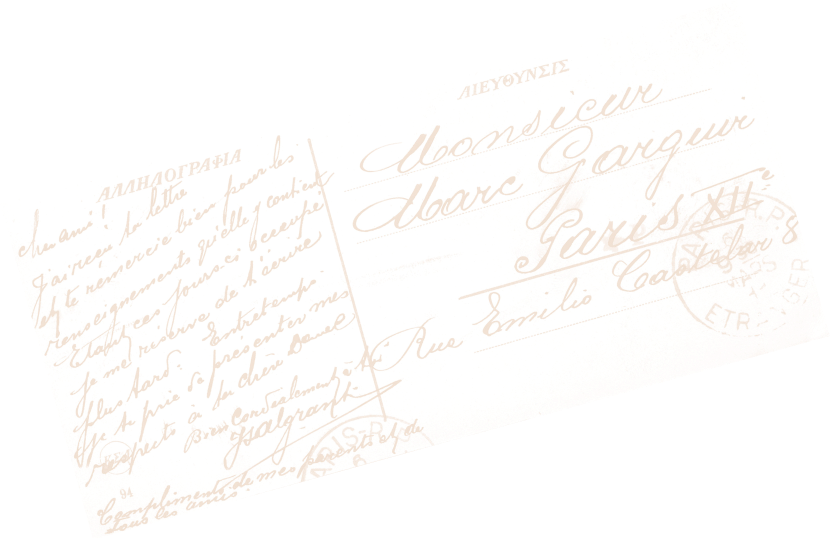 ΑΛΛΗΛΟΓΡΑΦΙΑ
cher ami!
J'ai reçu ta lettre
et te remercie bien pour les
renseignements qu'elle y contient
Etant ces jours-ci occupé
je me réserve de t'écrire
plus tard. Entretemps
je te prie de présenter mes
respects à ta chère Dame
Bien cordialement à toi
Compliments de mes parents et de
tous les amis.
94
ΔΙΕΥΘΥΝΣΙΣ
Monsieur
Marc Garguir
Paris XIIe
8
Rue Emilio Castelar
ETRANGER
PARIS